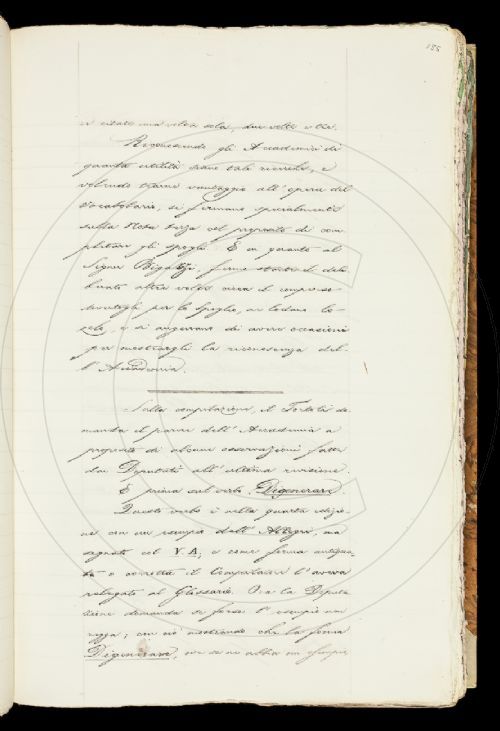 185
si citato una volta sola, due volte o tre.
Riconoscendo gli Accademici di
quanta utilità siano tale ricerche, e
volendo trarre vantaggio all'opera del
Vocabolario, si fermano specialmente
sulla Nota terza col proposito di com-
pletare gli spogli. E in quanto al
Signor Bigazzi, fermo stante il deli-
berato altra volta circa il compenso
per lo spoglio, ne lodano lo
zelo, e si augurano di avere occasione
per mostrargli la riconoscenza del-
l'Accademia.
Sulla compilazione, il Tortoli do-
manda il parere dell'Accademia a
proposito di alcune osservazioni fatte
dai Deputati all'ultima revisione.
E prima sul verbo Digenerare.
Questo verbo è nella quarta edizio-
ne con un esempio dell'Allegri, ma
segnato col V. A., e come forma antiqua-
ta o corrotta il Compilatore l'aveva
relegato al Glossario. Ora la Deputa-
zione domanda se forse l'esempio non
regga; con ciò mostrando che la forma
Digenerare, ove se ne abbia un esempio